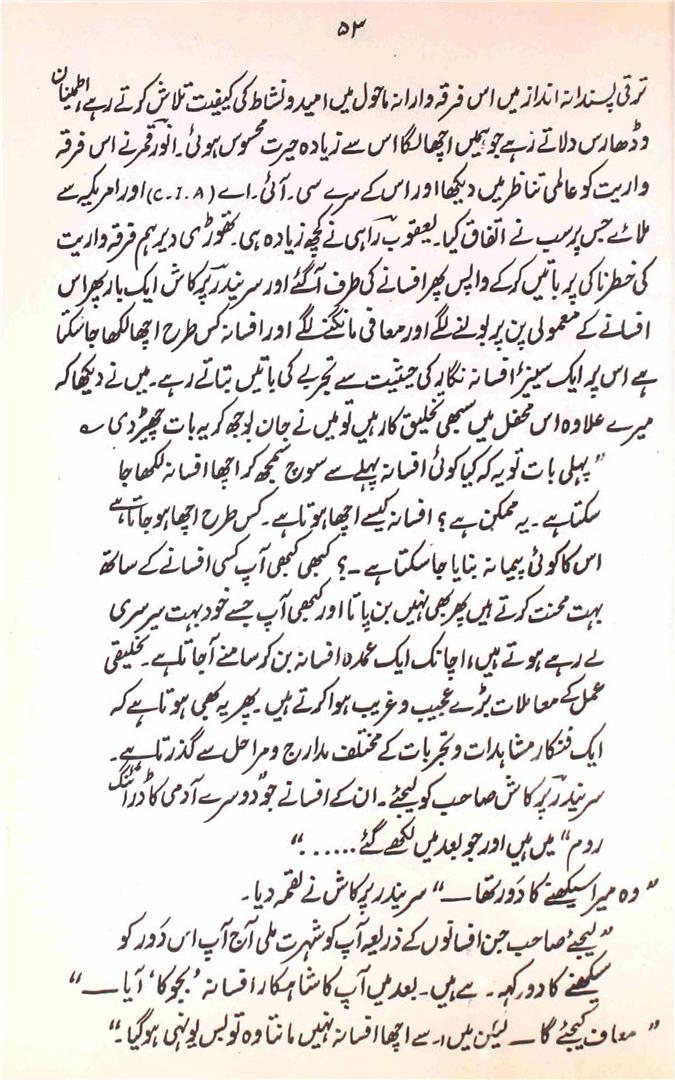 ۵۳
ترقی پسندانہ انداز میں اس فرقہ وارانہ ماحول میں امید و نشاط کی کیفیت تلاش کرتے رہے، اطمینان
و ڈھارس دلاتے رہے جو ہمیں اچھا لگا اس سے زیادہ حیرت محسوس ہوئی۔ انور قمر نے اس فرقہ
واریت کو عالمی تناظر میں دیکھا اور اس کے سرے سی۔ آئی۔ اے (C.I.A) اور امریکہ سے
ملائے جس پر سب نے اتفاق کیا۔ یعقوب راہی نے کچھ زیادہ ہی۔ تھوڑی دیر ہم فرقہ واریت
کی خطرناکی پر باتیں کر کے واپس پھر افسانے کی طرف آگئے اور سریندر پرکاش ایک بار پھر اس
افسانے کے معمولی پن پر بولنے لگے اور معافی مانگنے لگے اور افسانہ کس طرح اچھا لکھا جا سکتا
ہے اس پر ایک سینئر افسانہ نگار کی حیثیت سے تجربے کی باتیں بتاتے رہے۔ میں نے دیکھا کہ
میرے علاوہ اس محفل میں سبھی تخلیق کار ہیں تو میں نے جان بوجھ کر یہ بات چھیڑ دی ؎
”پہلی بات تو یہ کہ کیا کوئی افسانہ پہلے سے سوچ سمجھ کر اچھا افسانہ لکھا جا
سکتا ہے۔ یہ ممکن ہے؟ افسانہ کیسے اچھا ہوتا ہے۔ کس طرح اچھا ہو جاتا ہے
اس کا کوئی پیمانہ بنایا جا سکتا ہے۔؟ کبھی کبھی آپ کسی افسانے کے ساتھ
بہت محنت کرتے ہیں پھر بھی نہیں بن پاتا اور کبھی آپ جسے خود بہت سرسری
لے رہے ہوتے ہیں، اچانک ایک عمدہ افسانہ بن کر سامنے آ جاتا ہے۔ تخلیقی
عمل کے معاملات بڑے عجیب و غریب ہوا کرتے ہیں۔ پھر یہ بھی ہوتا ہے کہ
ایک فنکار مشاہدات و تجربات کے مختلف مدارج و مراحل سے گذرتا ہے۔
سریندر پرکاش صاحب کو لیجئے۔ ان کے افسانے جو ”دوسرے آدمی کا ڈرائنگ
روم“ میں ہیں اور جو بعد میں لکھے گئے ......“
”وہ میرا سیکھنے کا دَور تھا —“ سریندر پرکاش نے لقمہ دیا۔
”لیجئے صاحب جن افسانوں کے ذریعہ آپ کو شہرت ملی آج آپ اس دَور کو
سیکھنے کا دور کہہ۔ ہے ہیں۔ بعد میں آپ کا شاہکار افسانہ ’بجوکا‘ آیا —“
”معاف کیجئے گا — لیکن میں اسے اچھا افسانہ نہیں مانتا وہ تو بس یونہی ہو گیا۔“